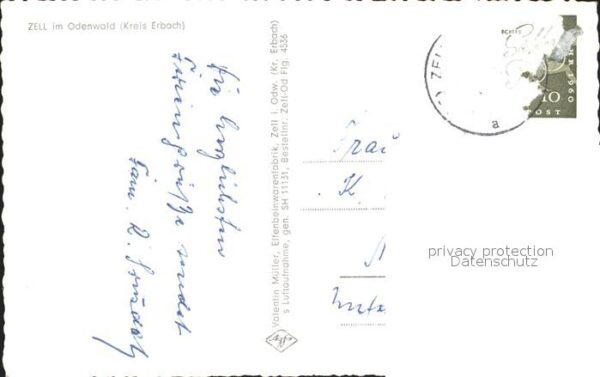 ZELL im Odenwald (Kreis Erbach)
Die herzlichsten
Feriengrüße sendet
Fam. R.
Valentin Müller, Elfenbeinwarenfabrik, Zell i. Odw. (Kr. Erbach)
s Luftaufnahme, gen. SH 11131, Bestellnr. Zell-Od Flg. 4536
Frau
K.
privacy protection
Datenschutz
ZELL
a
10
1960
POST